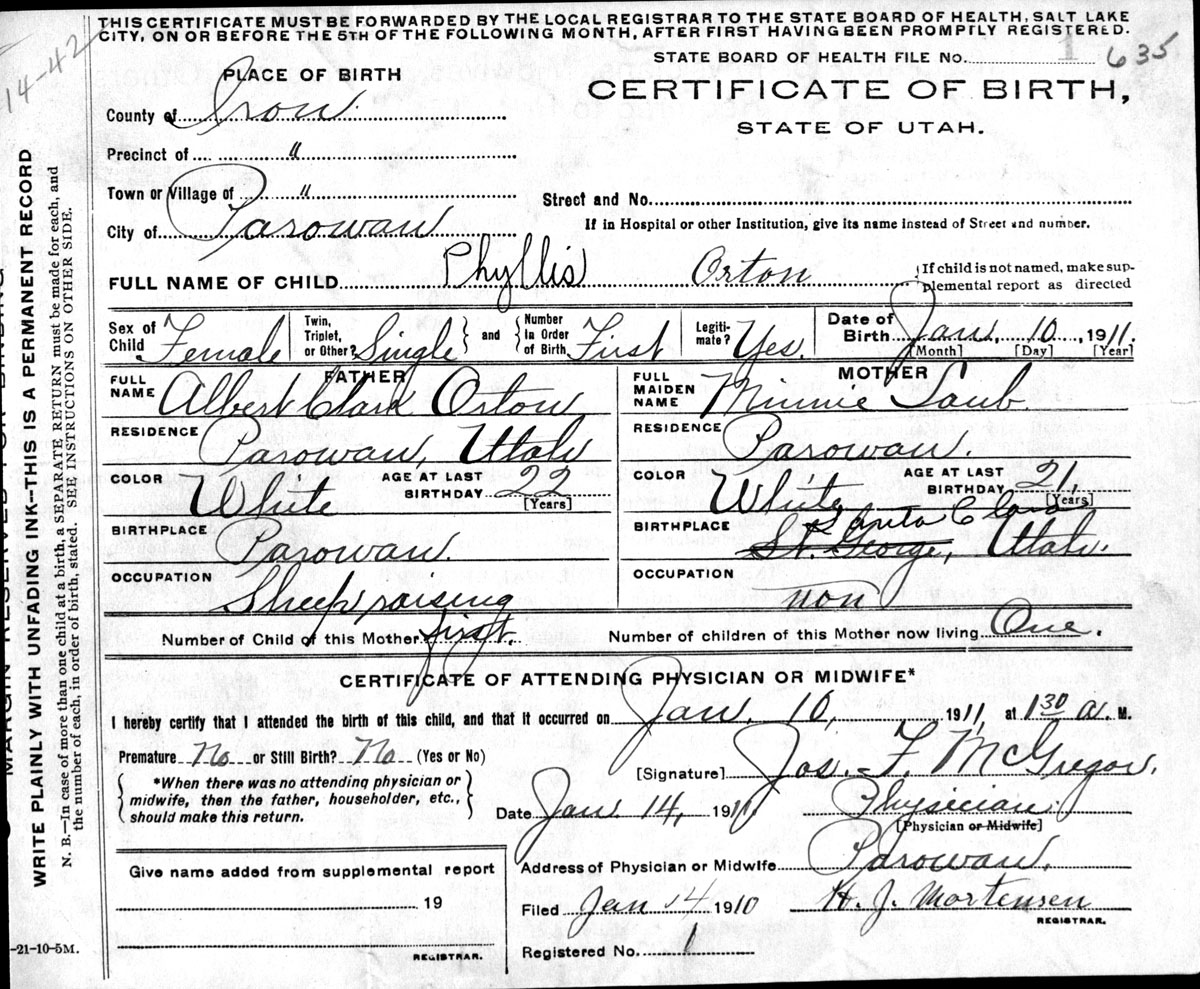 THIS CERTIFICATE MUST BE FORWARDED BY THE LOCAL REGISTRAR TO THE STATE BOARD OF HEALTH, SALT LAKE
CITY, ON OR BEFORE THE 5TH OF THE FOLLOWING MONTH, AFTER FIRST HAVING BEEN PROMPTLY REGISTERED.
14-42
STATE BOARD OF HEALTH FILE No. 1 635
PLACE OF BIRTH
CERTIFICATE OF BIRTH,
STATE OF UTAH.
County of Iron
Precinct of "
Town or Village of "
Street and No.
City of Parowan
If in Hospital or other Institution, give its name instead of Street and number.
FULL NAME OF CHILD Phyllis Orton
If child is not named, make sup-
plemental report as directed
Sex of Child Female
Twin, Triplet, or Other? Single and Number In Order of Birth First
Legiti-mate? Yes.
Date of Birth Jan, 10, 1911.
[Month] [Day] [Year]
FATHER
MOTHER
FULL NAME Albert Clark Orton
FULL MAIDEN NAME Minnie Laub.
RESIDENCE Parowan, Utah
RESIDENCE Parowan.
COLOR White AGE AT LAST BIRTHDAY 22 [Years]
COLOR White AGE AT LAST BIRTHDAY 21, [Years]
BIRTHPLACE Parowan.
BIRTHPLACE Santa Clara St. George, Utah.
OCCUPATION Sheep raising
OCCUPATION non
Number of Child of this Mother first.
Number of children of this Mother now living One.
CERTIFICATE OF ATTENDING PHYSICIAN OR MIDWIFE*
I hereby certify that I attended the birth of this child, and that it occurred on Jan. 10, 1911, at 1 30 a. M.
Premature No or Still Birth? No (Yes or No)
[Signature] Jos. F. McGregor.
*When there was no attending physician or
midwife, then the father, householder, etc.,
should make this return.
Date Jan 14, 1911. Physician
[Physician or Midwife]
Address of Physician or Midwife Parowan.
Filed Jan 14 1910 H. J. Mortensen
REGISTRAR.
Registered No. 1
Give name added from supplemental report
19
REGISTRAR.
-21-10-5M.
MARGIN RESERVED FOR BINDING
WRITE PLAINLY WITH UNFADING INK--THIS IS A PERMANENT RECORD
N. B.—In case of more than one child at a birth, a SEPARATE RETURN must be made for each, and
the number of each, in order of birth, stated. SEE INSTRUCTIONS ON OTHER SIDE.